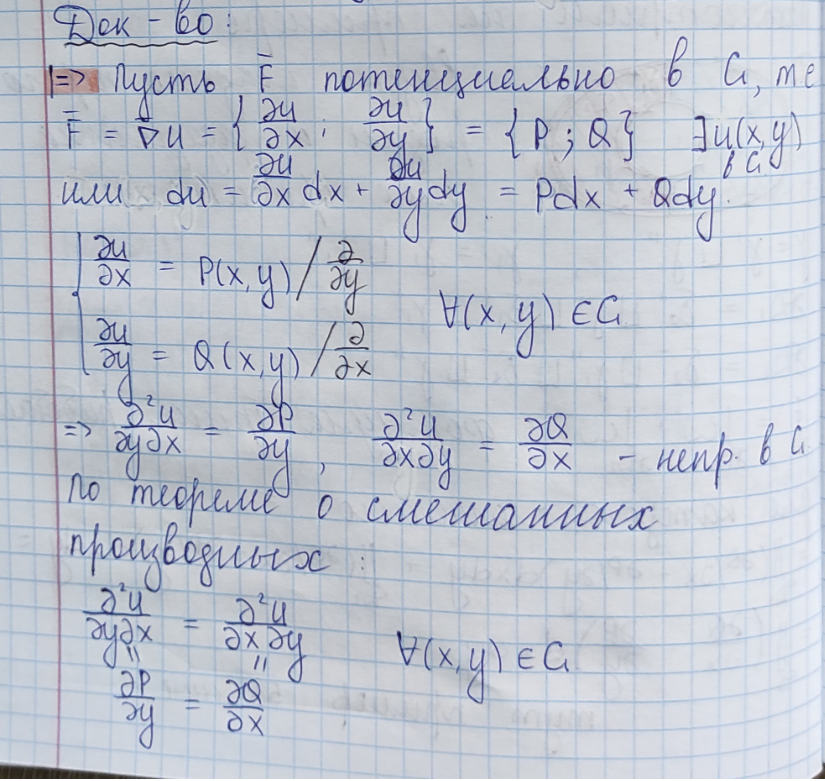 Док-во:
|=> Пусть F̄ потенциально в G, те
F̄ = ∇̄u = {∂u/∂x ; ∂u/∂y} = {P ; Q} ∃u(x,y) в G
или du = ∂u/∂x dx + ∂u/∂y dy = Pdx + Qdy.
{ ∂u/∂x = P(x,y) / ∂/∂y
∀(x,y) ∈ G
∂u/∂y = Q(x,y) / ∂/∂x
=> ∂²u/∂y∂x = ∂P/∂y , ∂²u/∂x∂y = ∂Q/∂x - непр. в G
По теореме о смешанных
производных :
∂²u/∂y∂x = ∂²u/∂x∂y
" " ∀(x,y) ∈ G
∂P/∂y = ∂Q/∂x